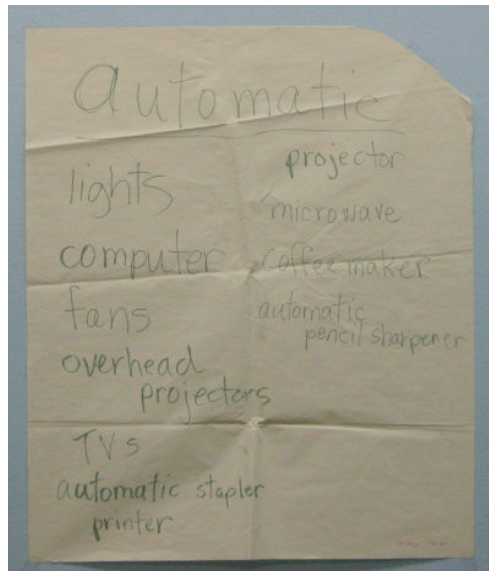 automatic
lights
computer
fans
overhead
projectors
TVs
automatic stapler
printer
projector
microwave
coffee maker
automatic
pencil sharpener